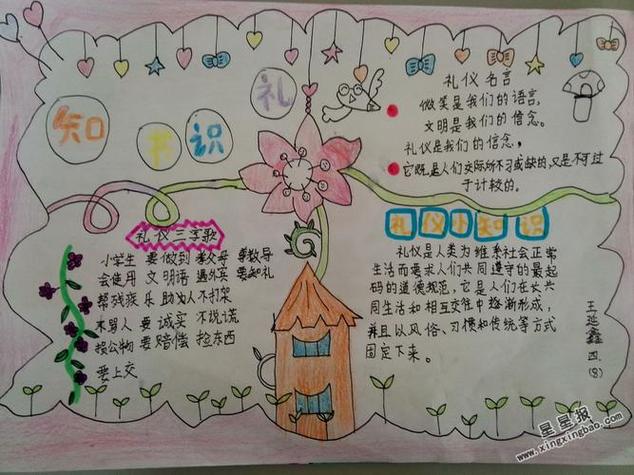 知书识礼
礼仪名言
微笑是我们的语言,
文明是我们的信念。
礼仪是我们的信念,
它既是人们交际所不可或缺的,又是不可过
于计较的。
礼仪三字歌
小学生 要做到 敬父母 尊教导
会使用 文明语 遇外宾 要知礼
帮残疾 乐助人 不打架
未骂人 要诚实 不说谎
损公物 要赔偿 捡东西
要上交
礼仪小知识
礼仪是人类为维系社会正常
生活而要求人们共同遵守的最起
码的道德规范,它是人们在长共
同生活和相互交往中逐渐形成,
并且以风俗、习惯和传统等方式
固定下来。
四(8)
星星报
www.xingxingbao.com